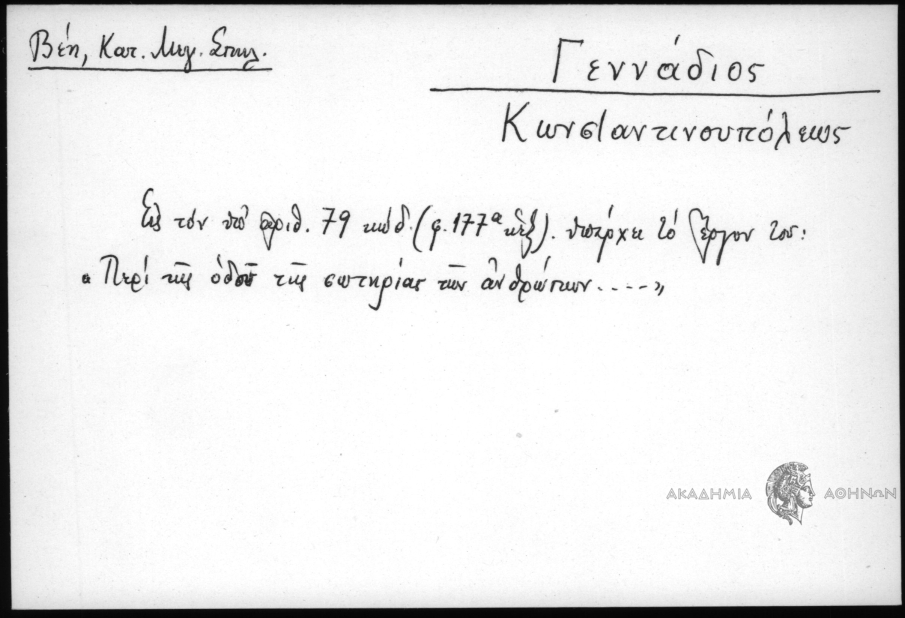 Βέη, Κατ. Μεγ. Σπηλ.
Γεννάδιος
Κωνσταντινουπόλεως
Εἰς τόν ὑπ' ἀριθ. 79 κώδ. (φ. 177α κἑξ). ὑπάρχει τό ἔργον του:
« Περί τῆς ὁδοῦ τῆς σωτηρίας τῶν ἀνθρώπων.....»
ΑΚΑΔΗΜΙΑ ΑΘΗΝΩΝ